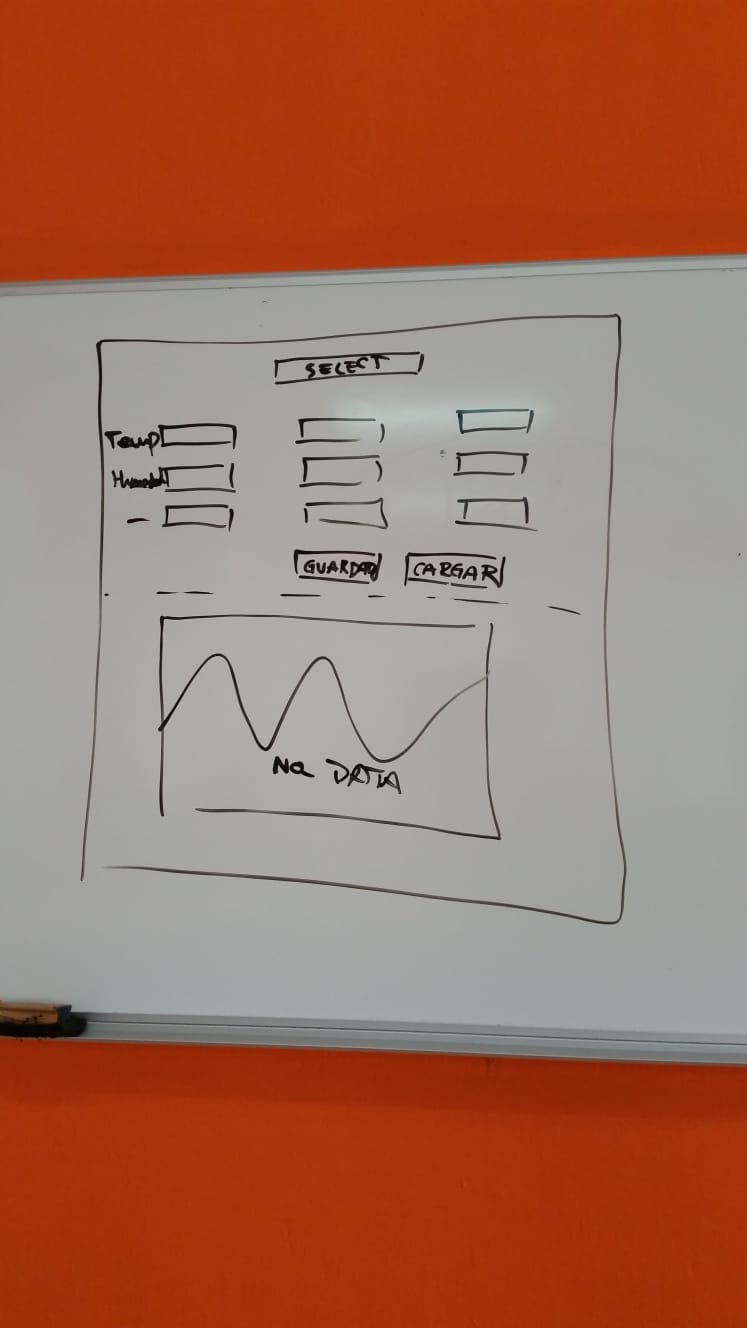 SELECT
Temp
Humedad
-
GUARDAR CARGAR
No DATA